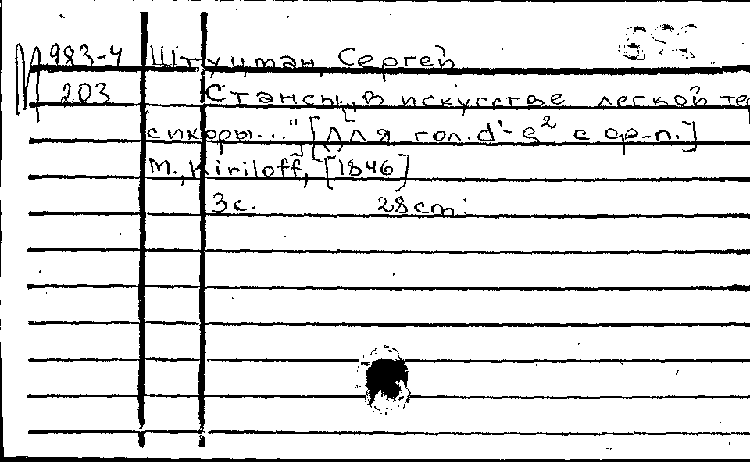 М 983-4 Штуцман, Сергей
203 Стансы „В искусстве легкой тер
сихоры..." [Для гол. d¹-g² с ор-п.]
М., Kiriloff, [1846]
3 с. 28 cm.